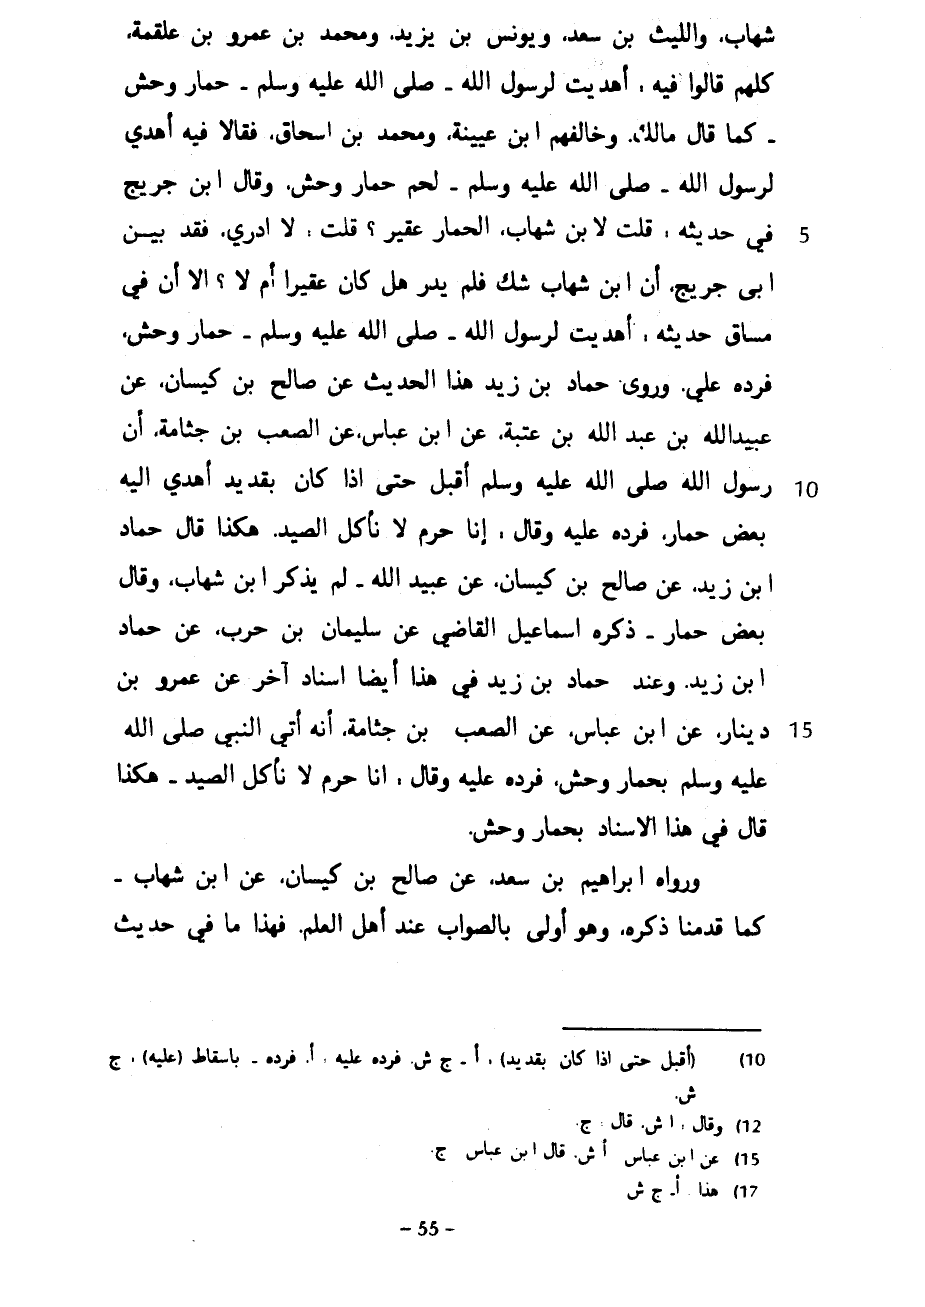 شهاب، والليث بن سعد، ويونس بن يزيد، ومحمد بن عمرو بن علقمة،
كلهم قالوا فيه : أهديت لرسول الله ـ صلى الله عليه وسلم ـ حمار وحش
ـ كما قال مالك، وخالفهم ابن عيينة، ومحمد بن اسحاق، فقالا فيه أهدي
لرسول الله ـ صلى الله عليه وسلم ـ لحم حمار وحش، وقال ابن جريج
5 في حديثه : قلت لابن شهاب، الحمار عقير ؟ قلت : لا ادري، فقد بيـن
ابى جريج، أن ابن شهاب شك فلم يدر هل كان عقيرا أم لا ؟ الا أن في
مساق حديثه : أهديت لرسول الله ـ صلى الله عليه وسلم ـ حمار وحش،
فرده علي. وروى حماد بن زيد هذا الحديث عن صالح بن كيسان، عن
عبيدالله بن عبد الله بن عتبة، عن ابن عباس،عن الصعب بن جثامة، أن
10 رسول الله صلى الله عليه وسلم أقبل حتى اذا كان بقديد أهدي اليه
بعض حمار، فرده عليه وقال : إنا حرم لا نأكل الصيد. هكذا قال حماد
ابن زيد، عن صالح بن كيسان، عن عبيد الله ـ لم يذكر ابن شهاب، وقال
بعض حمار ـ ذكره اسماعيل القاضي عن سليمان بن حرب، عن حماد
ابن زيد. وعند حماد بن زيد في هذا أيضا اسناد آخر عن عمرو بن
15 دينار، عن ابن عباس، عن الصعب بن جثامة، أنه أتي النبي صلى الله
عليه وسلم بحمار وحش، فرده عليه وقال : انا حرم لا نأكل الصيد ـ هكذا
قال في هذا الاسناد بحمار وحش.
ورواه ابراهيم بن سعد، عن صالح بن كيسان، عن ابن شهاب ـ
كما قدمنا ذكره، وهو أولى بالصواب عند أهل العلم. فهذا ما في حديث
10) (أقبل حتى اذا كان بقديد) : أ ـ ج ش. فرده عليه : أ. فرده ـ باسقاط (عليه) : ج
ش.
12) وقال : ا ش. قال : ج.
15) عن ابن عباس أ ش. قال ابن عباس ج.
17) هذا أـ ج ش
- 55 -